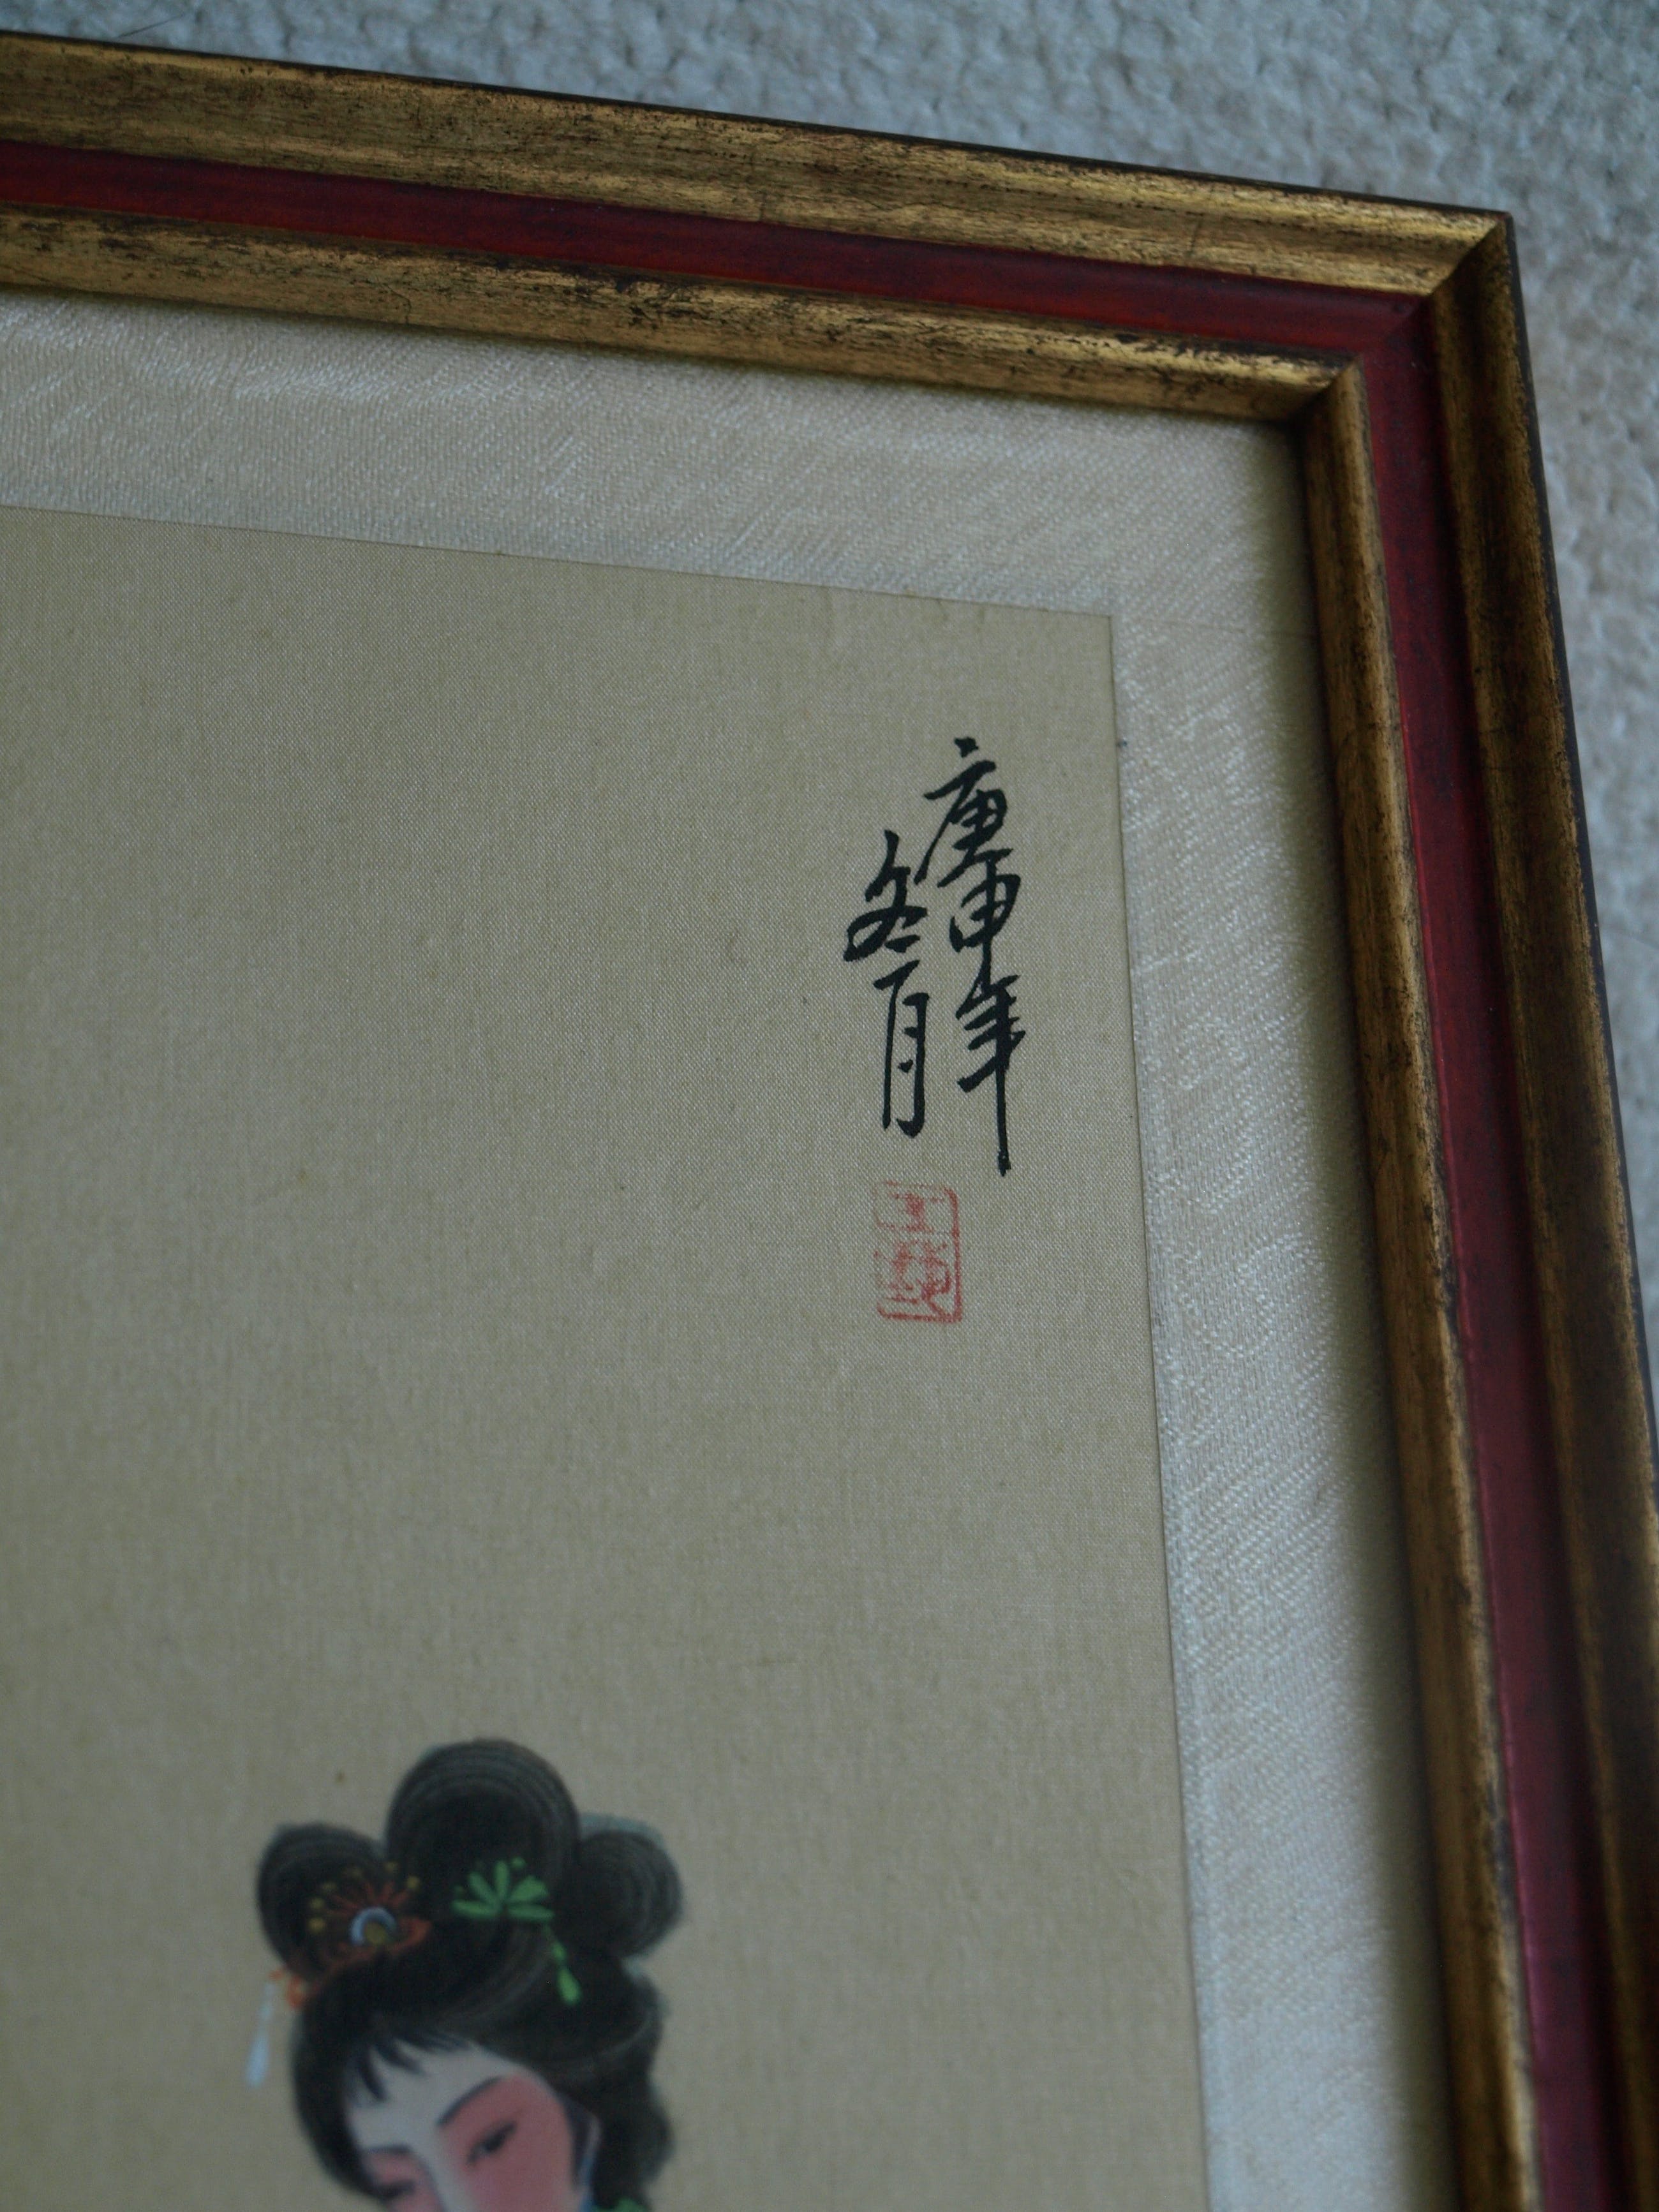 庚申年
冬月